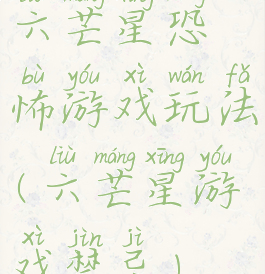 六芒星恐
bù yóu xì wán fǎ
怖游戏玩法
liù máng xīng yóu
(六芒星游
xì jìn jì
戏禁忌)